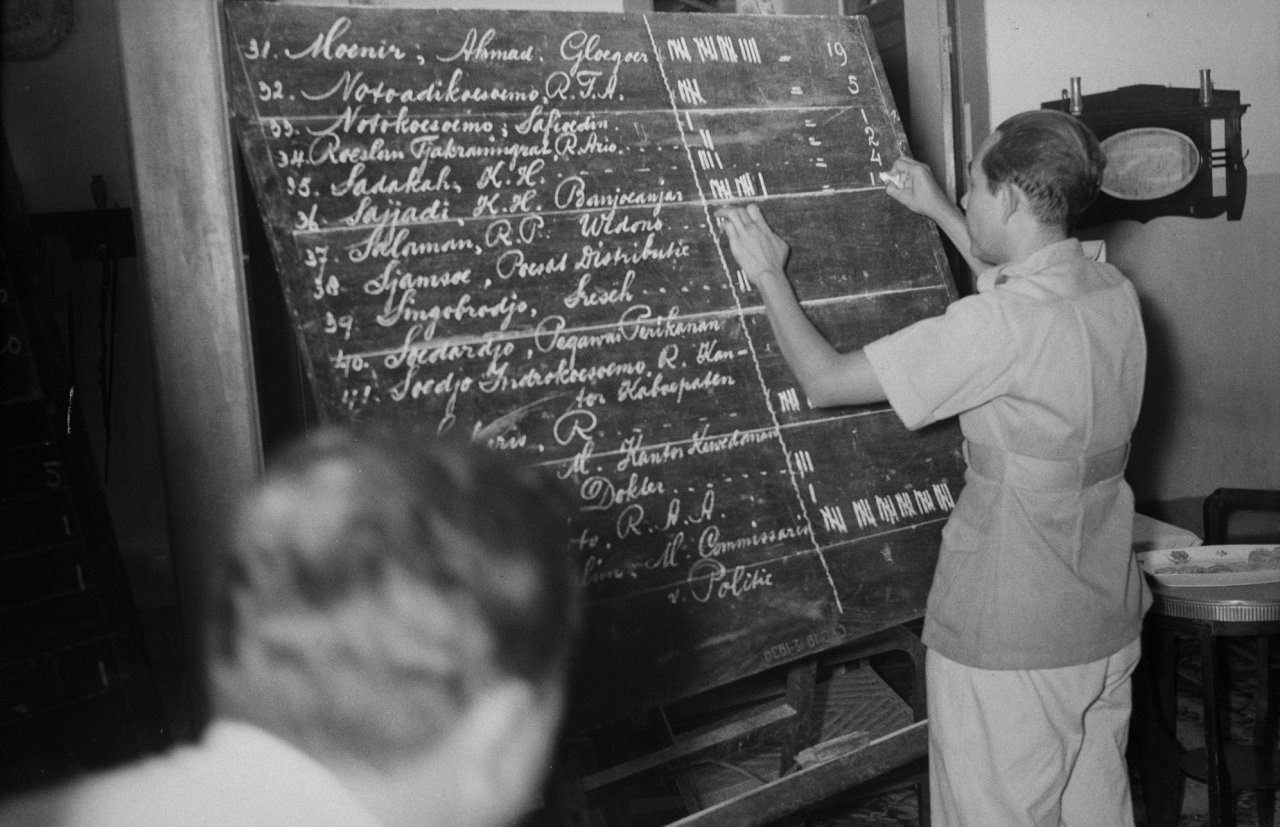 31. Moenir, Ahmad. Gloegoer = 19
32. Notoadikoesoemo, R.T.A. = 5
33. Notokoesoemo, Safioedin. = 1
34. Roeslan Tjakraningrat, R. Ario. = 2
35. Sadakah, K.H. = 4
36 Sajjadi, K.H. Banjoeanjar = 1
37. Salaman, R.P. Wedono
38. Sjamsoe, Poesat Distributie
39 Singobrodjo, Sreseh
40. Soedardjo, Pegawai Perikanan
41. Soedjo Indrokoesoemo. R. Kan-
tor Kaboepaten
R.
M. Kantor Kewedanan
Dokter
to, R.A.A.
M. Commissaris
v. Politie